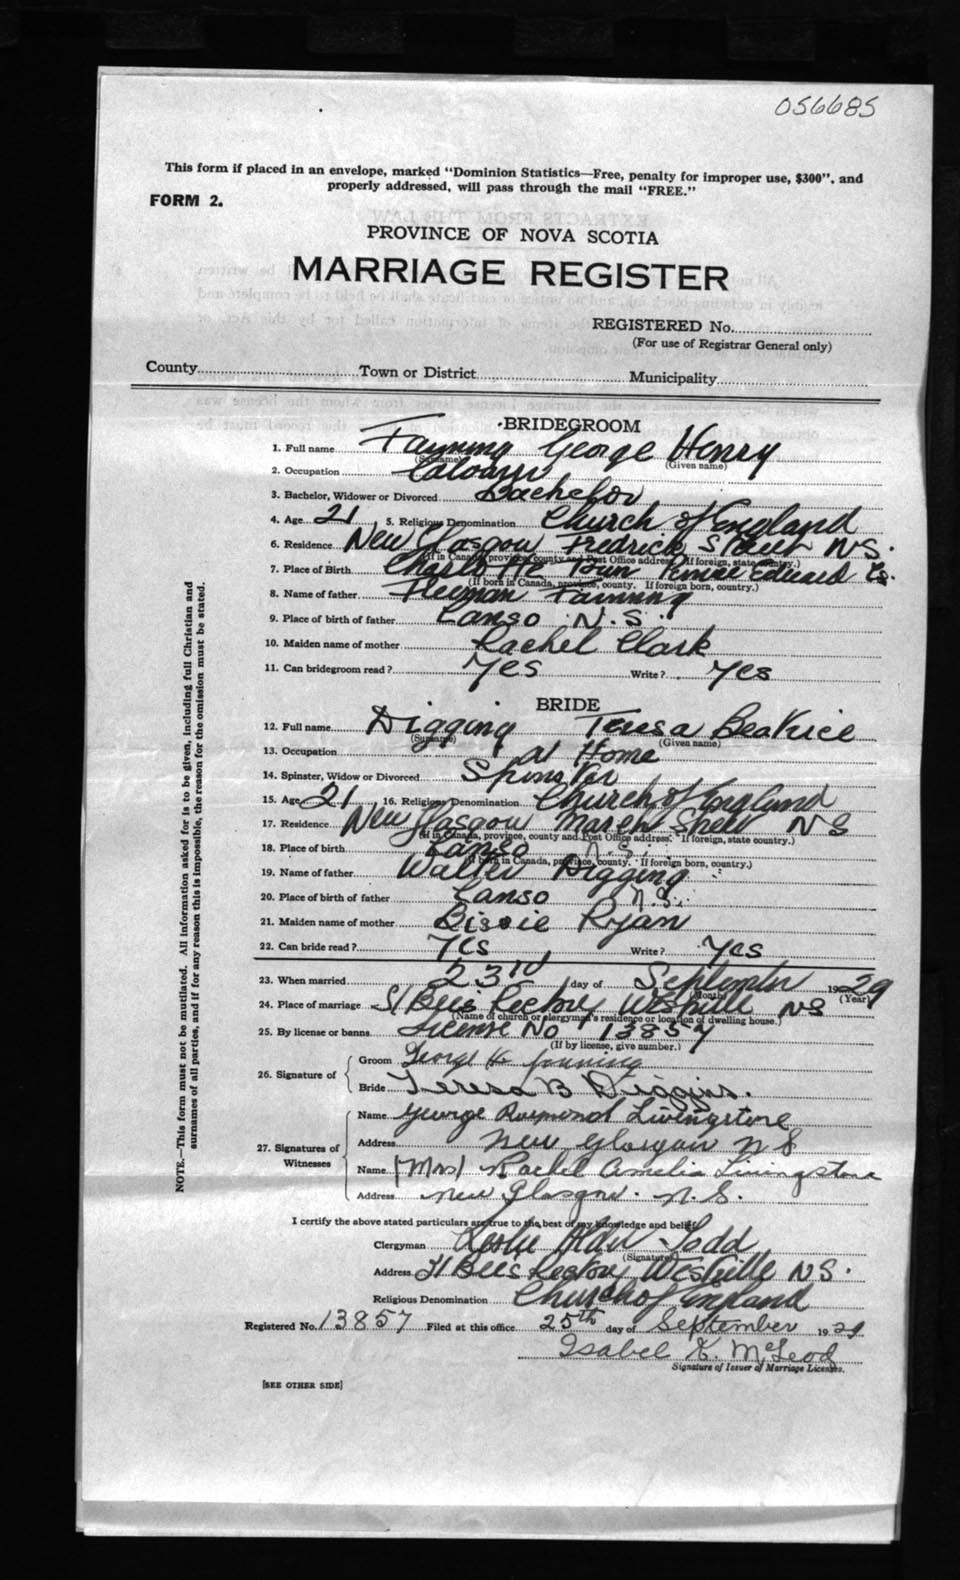 056685
This form if placed in an envelope, marked "Dominion Statistics—Free, penalty for improper use, $300", and
properly addressed, will pass through the mail "FREE."
FORM 2.
PROVINCE OF NOVA SCOTIA
MARRIAGE REGISTER
REGISTERED No.
(For use of Registrar General only)
County Town or District Municipality
BRIDEGROOM
1. Full name Fanning George Henry
(Surname) (Given name)
2. Occupation
3. Bachelor, Widower or Divorced Bachelor
4. Age 21 5. Religious Denomination Church of England
6. Residence New Glasgow Fredrick Street N S.
(If in Canada, province, county and Post Office address. If foreign, state country.)
7. Place of Birth Charlotte Town Prince Edward Is.
(If born in Canada, province, county. If foreign born, country.)
8. Name of father Freeman Fanning
9. Place of birth of father Canso N.S.
10. Maiden name of mother Rachel Clark
11. Can bridegroom read? Yes Write? Yes
BRIDE
12. Full name Digging Teresa Beatrice
(Surname) (Given name)
13. Occupation at Home
14. Spinster, Widow or Divorced Spinster
15. Age 21 16. Religious Denomination Church of England
17. Residence New Glasgow Marsh Street N S
(If in Canada, province, county and Post Office address. If foreign, state country.)
18. Place of birth Canso N.S.
(If born in Canada, province, county. If foreign born, country.)
19. Name of father Walter Digging
20. Place of birth of father Canso N.S.
21. Maiden name of mother Bissie Ryan
22. Can bride read? Yes Write? Yes
23. When married 23rd day of September 1929
(Month) (Year)
24. Place of marriage St Bees Rectory Westville NS
(Name of church or clergyman's residence or location of dwelling house.)
25. By license or banns License No 13857
(If by license, give number.)
26. Signature of Groom George H Fanning
Bride Teresa B Diggins.
27. Signatures of Witnesses Name George Raymond Livingstone
Address New Glasgow N S
Name (Mrs) Rachel Amelia Livingstone
Address New Glasgow. N. S.
I certify the above stated particulars are true to the best of my knowledge and belief.
Clergyman Leslie Alder Todd
(Signature)
Address St Bees Rectory Westville N S.
Religious Denomination Church of England
Registered No. 13857 Filed at this office 25th day of September 1929
Isabel K. McLeod
Signature of Issuer of Marriage Licenses.
[SEE OTHER SIDE]
NOTE.—This form must not be mutilated. All information asked for is to be given, including full Christian and
surnames of all parties, and if for any reason this is impossible, the reason for the omission must be stated.